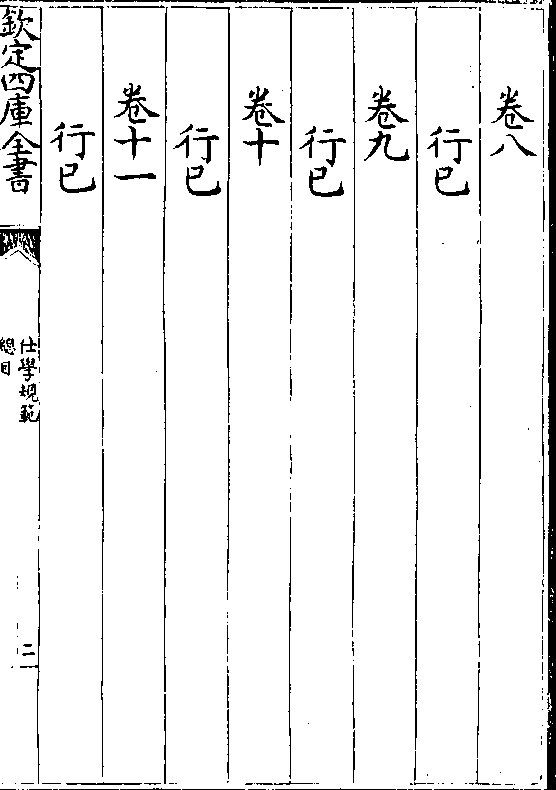 卷八
行已
卷九
行已
卷十
行已
卷十一
行已
欽定四庫全書
仕學規範
總目
二